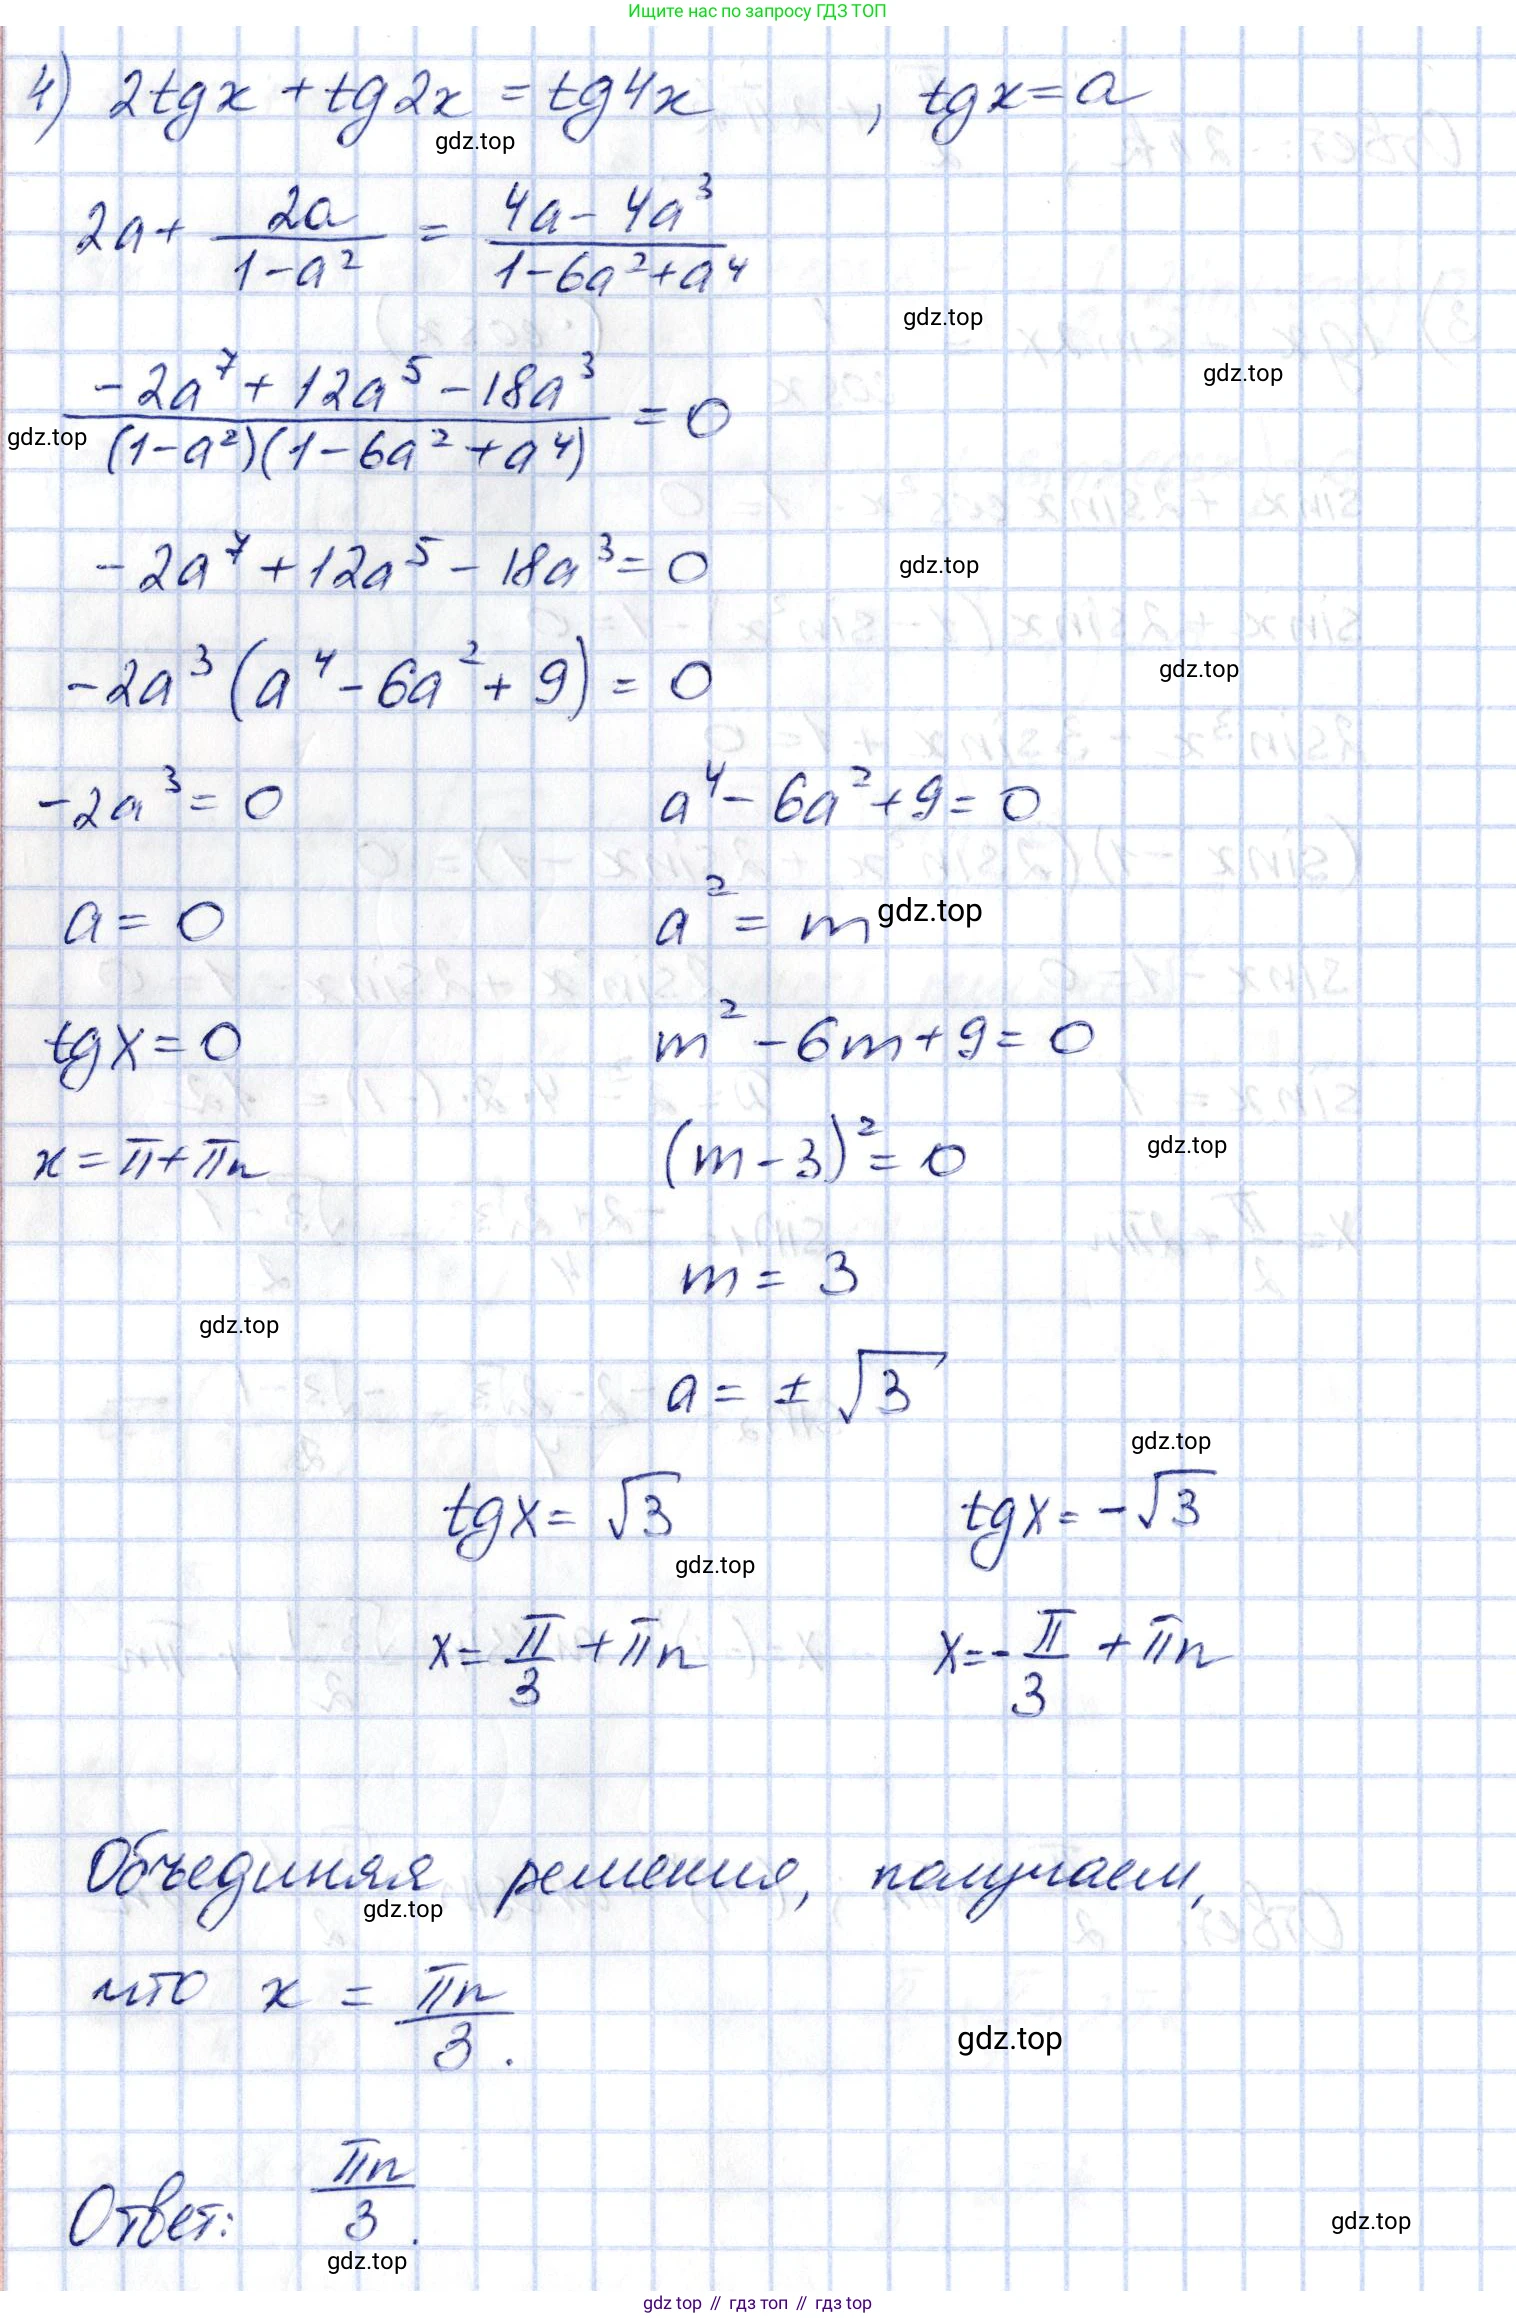 Ищите нас по запросу ГДЗ ТОП
4) 2tgx + tg2x = tg4x , tgx = a
gdz.top
2a + 2a/(1-a²) = (4a - 4a³)/(1-6a²+a⁴)
gdz.top
gdz.top
(-2a⁷ + 12a⁵ - 18a³)/((1-a²)(1-6a²+a⁴)) = 0
gdz.top
-2a⁷ + 12a⁵ - 18a³ = 0
gdz.top
-2a³(a⁴ - 6a² + 9) = 0
gdz.top
-2a³ = 0 a⁴ - 6a² + 9 = 0
a = 0 a² = m
gdz.top
tgx = 0 m² - 6m + 9 = 0
x = π + πn (m - 3)² = 0
gdz.top
m = 3
gdz.top
a = ± √3
gdz.top
tgx = √3 tgx = -√3
gdz.top
x = π/3 + πn x = -π/3 + πn
Объединяя решения, получаем,
gdz.top
что x = πn/3.
gdz.top
Ответ: πn/3.
gdz.top
gdz.top
gdz top // гдз топ // гдз top